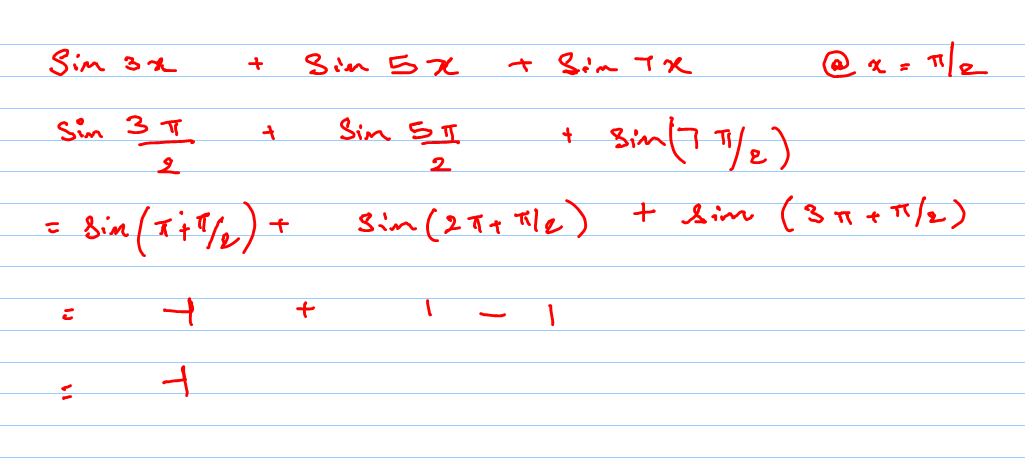 Sin 3x + Sin 5x + Sin 7x @ x = π/2
Sin 3π/2 + Sin 5π/2 + Sin(7π/2)
= Sin(π+π/2) + Sin(2π+π/2) + Sin (3π+π/2)
= -1 + 1 - 1
= -1